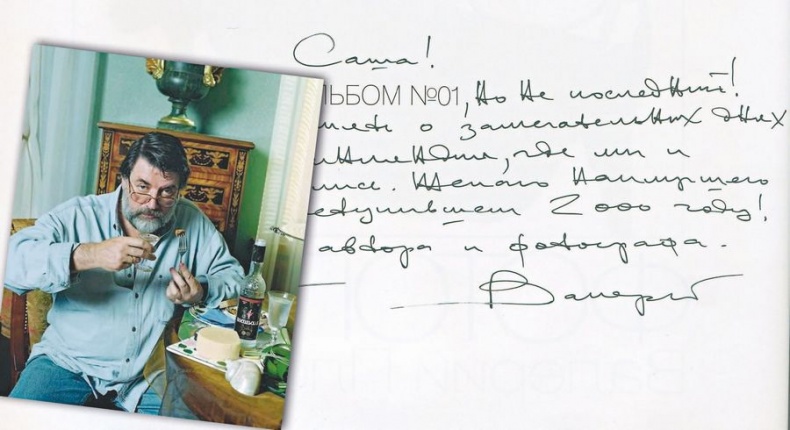 Саша!
ЛЬБОМ №01, но не последний!
о замечательных днях
где мы и
Желаю наилучшего
ступившем 2000 году!
автора и фотографа.
Валерий